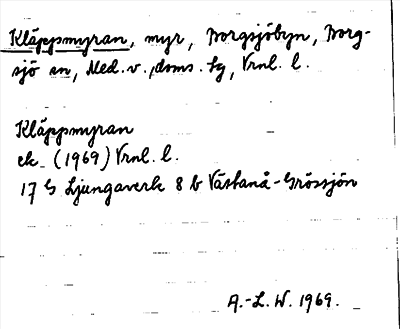 Kläppmyran, myr, Borgsjöbyn, Borg-
sjö sn, Med. v. doms. tg, Vrnl. l.
Kläppmyran
ek. (1969) Vrnl. l.
17 G Ljungaverk 8 b Västanå-Grössjön
A.-L. W. 1969.